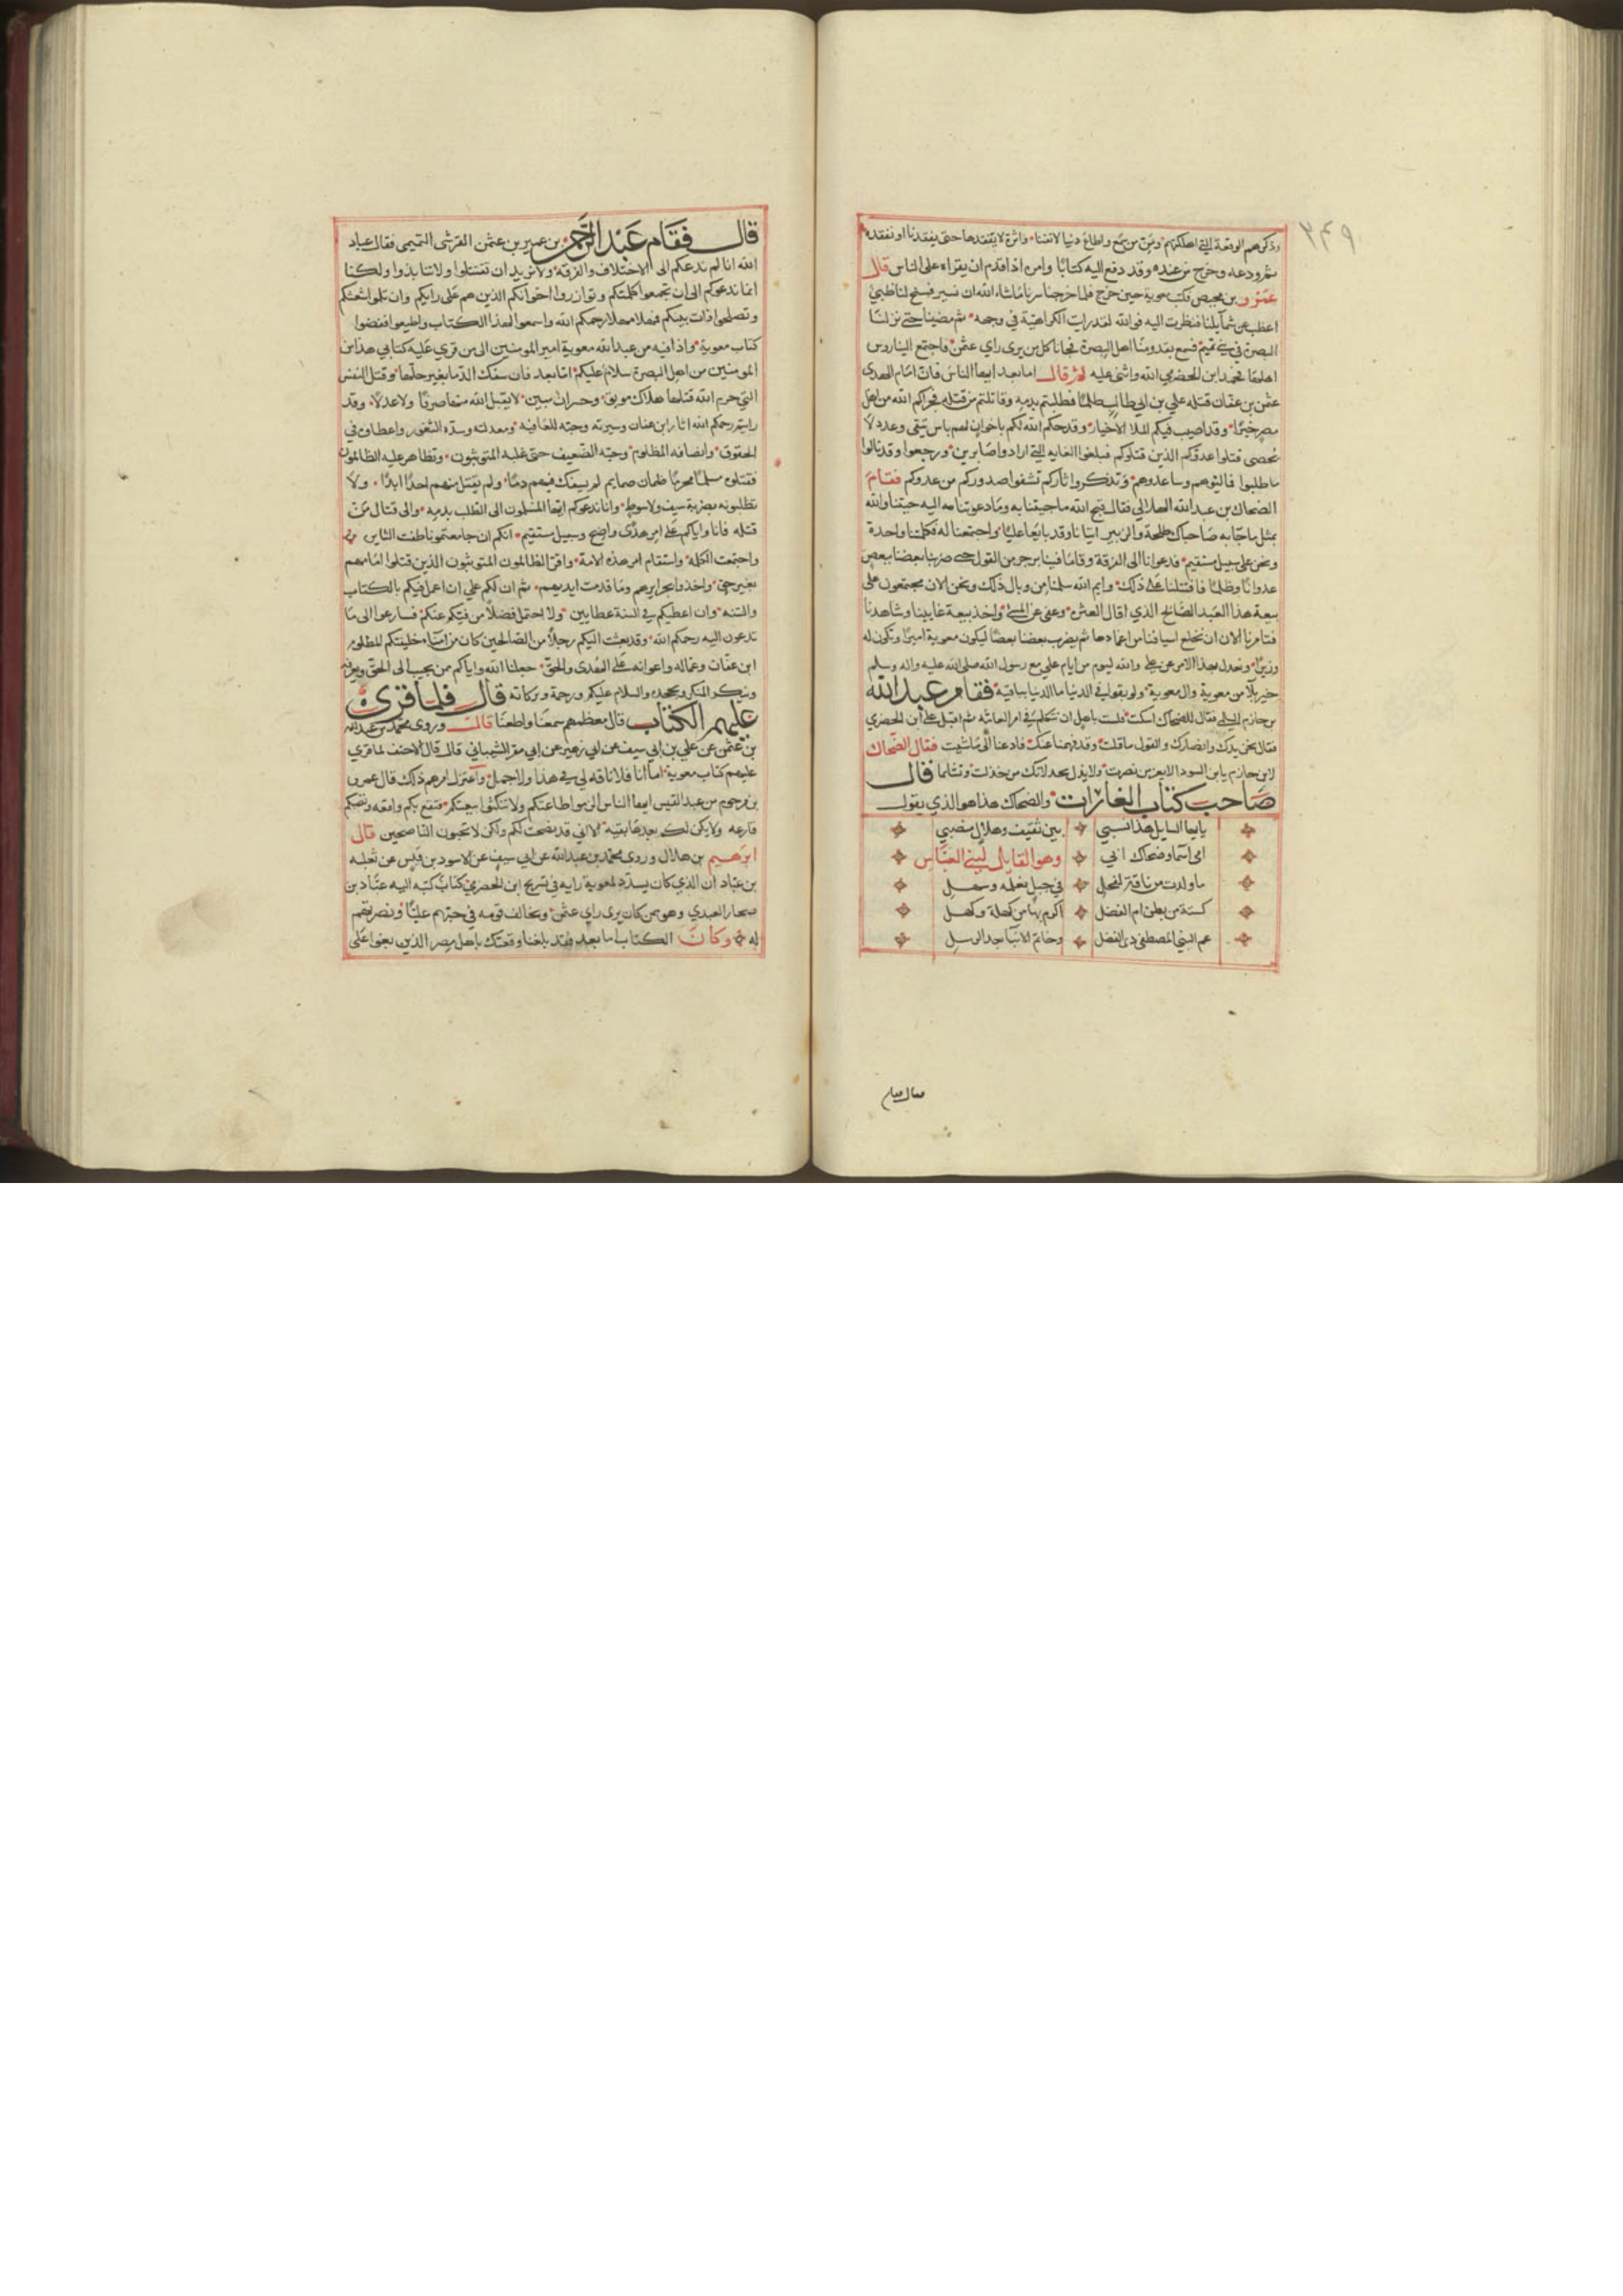 ٣٤٩
وذكرهم الوقعة التي اهلكتهم ومن من سمع واطاع دنيا لا تفنا واثرة لا يفقدها حتى يفقدنا او نفقده
ثم ودعه وخرج من عنده وقد دفع اليه كتابا وامره اذا قدم ان يقراه على الناس قال
عمرو بن محيص فكنت معوية حين خرج فلما خرجنا سرنا ما شاء الله ان نسير فسنح لنا ظبي
اعضب عن شمايلنا فنظرت اليه فوالله لقد رايت الكراهية في وجهه ثم مضينا حتى نزلنا
البصرة في بني تميم فسمع بقدومنا اهل البصرة فجانا كل من يرى راي عثمن فاجتمع الينا روس
اهلها فحمد ابن الحضرمي الله واثنى عليه ثم قال اما بعد ايها الناس فان امام الهدى
عثمن بن عفان قتله علي بن ابي طالب ظلما فطلبتم بدمه وقاتلتم من قتله فجزاكم الله من اهل
مصر خيرا وقد اصيب فيكم الملا الاخيار وقد جكم الله لكم باخوان لهم باس يتقى وعدد لا
يحصى قتلوا عدوكم الذين قتلوكم فبلغوا الغاية التي ارادوا صابرين ورجعوا وقد نالوا
ما طلبوا فماليوهم وساعدوهم وتذكروا ثاركم تشفوا صدوركم من عدوكم فقام
الضحاك بن عبد الله الهلالي فقال قبح الله ما جيتنا به وما دعوتنا اليه جيتنا والله
بمثل ما جآ به صاحباك طلحة والزبير اتيانا وقد بايعنا عليا واجتمعنا له فكلمتنا واحدة
ونحن على سبيل مستقيم فدعوانا الى الفرقة وقاما فينا بزخرف القول حتى ضربنا بعضنا ببعض
عدوانا وظلما فاقتتلنا على ذلك وايم الله ما سلمنا من وبال ذلك ونحن الان مجتمعون على
بيعة هذا العبد الصالح الذي اقال العثرة وعفى عن المسي واخذ بيعة غايبنا وشاهدنا
فتامرنا الان ان نختلع اسيافنا من اغمادها ثم يضرب بعضنا بعضا ليكون معوية اميرا وتكون له
وزيرا ونعدل بهذا الامر عن علي والله ليوم من ايام علي مع رسول الله صلى الله عليه واله وسلم
خير بلآ من معوية وال معوية ولو بقوا في الدنيا ما الدنيا باقية فقام عبد الله
بن حازم السلمي فقال للضحاك اسكت فلست باهل ان تتكلم في امر العامة ثم اقبل على ابن الحضرمي
فقال نحن يدك وانصارك والقول ما قلت وقد فهمنا عنك فادعنا الى ما شيت فقال الضحاك
لابن حازم يابن السودا لا يعز من نصرت ولا يذل بخذلانك من خذلت وتشاتما قال
صاحب كتاب الغارات والضحاك هذا هو الذي يقول
يا ايها السايل هذا نسبي بين ثقيف وهلال منصبي
امي اسما وضحاك ابي وهو القايل لبني العباس
ما ولدت من ناقة لفحل في جبل نعلمه وسهل
كستة من بطن ام الفضل اكرم بها من كهلة وكهل
عم النبي المصطفى ذى الفضل وخاتم الانبيا بعد الرسل
قال فقام
قال فقام عبد الرحمن بن عمير بن عثمن القرشى التميمى فقال عباد
الله انا لم ندعكم الى الاختلاف والفرقة ولا نريد ان تقتتلوا ولا تنابذوا ولكنا
انما ندعوكم الى ان تجمعوا كلمتكم وتوازروا اخوانكم الذين هم على رايكم وان تلموا شعثكم
وتصلحوا ذات بينكم فمهلا مهلا رحمكم الله واسمعوا لهذا الكتاب واطيعوا ففضوا
كتاب معوية واذا فيه من عبد الله معوية امير المومنين الى من قري عليه كتابي هذا من
المومنين من اهل البصرة سلام عليكم اما بعد فان سفك الدما بغير حلها وقتل النفس
التي حرم الله قتلها هلاك موبق وخسران مبين لا يقبل الله منها صرفا ولا عدلا وقد
رايتم رحمكم الله اثار ابن عفان وسيرته وحبه للعافية ومعدلته وسده الثغور واعطاه في
الحقوق وانصافه المظلوم وحبه الضعيف حتى غلبه المتوثبون وتظاهر عليه الظالمون
فقتلوه مسلما محرما ظمان صايم لم يسفك فيهم دما ولم يقتل منهم احدا ابدا ولا
تطلبونه بضربة سيف ولا سوط وانا ندعوكم ايها المسلمون الى الطلب بدمه والى قتال من
قتله فانا واياكم على امر هدى واضح وسبيل مستقيم انكم ان جامعتمونا طفت الثايره
واجتمعت الكلمة واستقام امر هذه الامة واقر الظالمون المتوثبون الذين قتلوا امامهم
بغير حق واخذوا بجرايرهم وما قدمت ايديهم ثم ان لكم علي ان اعمل فيكم بالكتاب
والسنة وان اعطيكم في السنة عطايين ولا احتمل فضلا من فيكم عنكم فسارعوا الى ما
تدعون اليه رحمكم الله وقد بعثت اليكم رجلا من الصالحين كان من امناء خليفتكم المظلوم
ابن عفان وعماله واعوانه على الهدى والحق جعلنا الله واياكم من يجيب الى الحق ويعرفه
وينكر المنكر ويجحده والسلام عليكم ورحمة وبركاته قال فلما قرئ
عليهم الكتاب قال معظمهم سمعنا واطعنا قال وروى محمد بن عبد الله
بن عثمن عن علي بن ابي سيف عن ابي زهير عن ابي مقر الشيباني قال قال الاحنف لما قري
عليهم كتاب معوية اما انا فلا ناقة لي في هذا ولا جمل واعتزل امرهم ذلك قال عمرو
بن مرجوم من عبد القيس ايها الناس الزموا طاعتكم ولا تنكثوا بيعتكم فتقع بكم واقعة وتصبكم
قارعة ولا يكن لكم بعدها بقية الا اني قد نصحت لكم ولكن لا تحبون الناصحين قال
ابرهيم بن هلال وروى محمد بن عبد الله عن ابي سيف عن الاسود بن قيس عن ثعلبه
بن عباد ان الذي كان يسدد لمعوية رايه في تسريح ابن الحضرمي كتاب كتبه اليه عباد بن
صحار العبدي وهو ممن كان يرى راي عثمن ويخالف قومه في حبهم عليا ونصرتهم
له وكان الكتاب اما بعد فقد بلغنا وقعتك باهل مصر الذين بغوا على